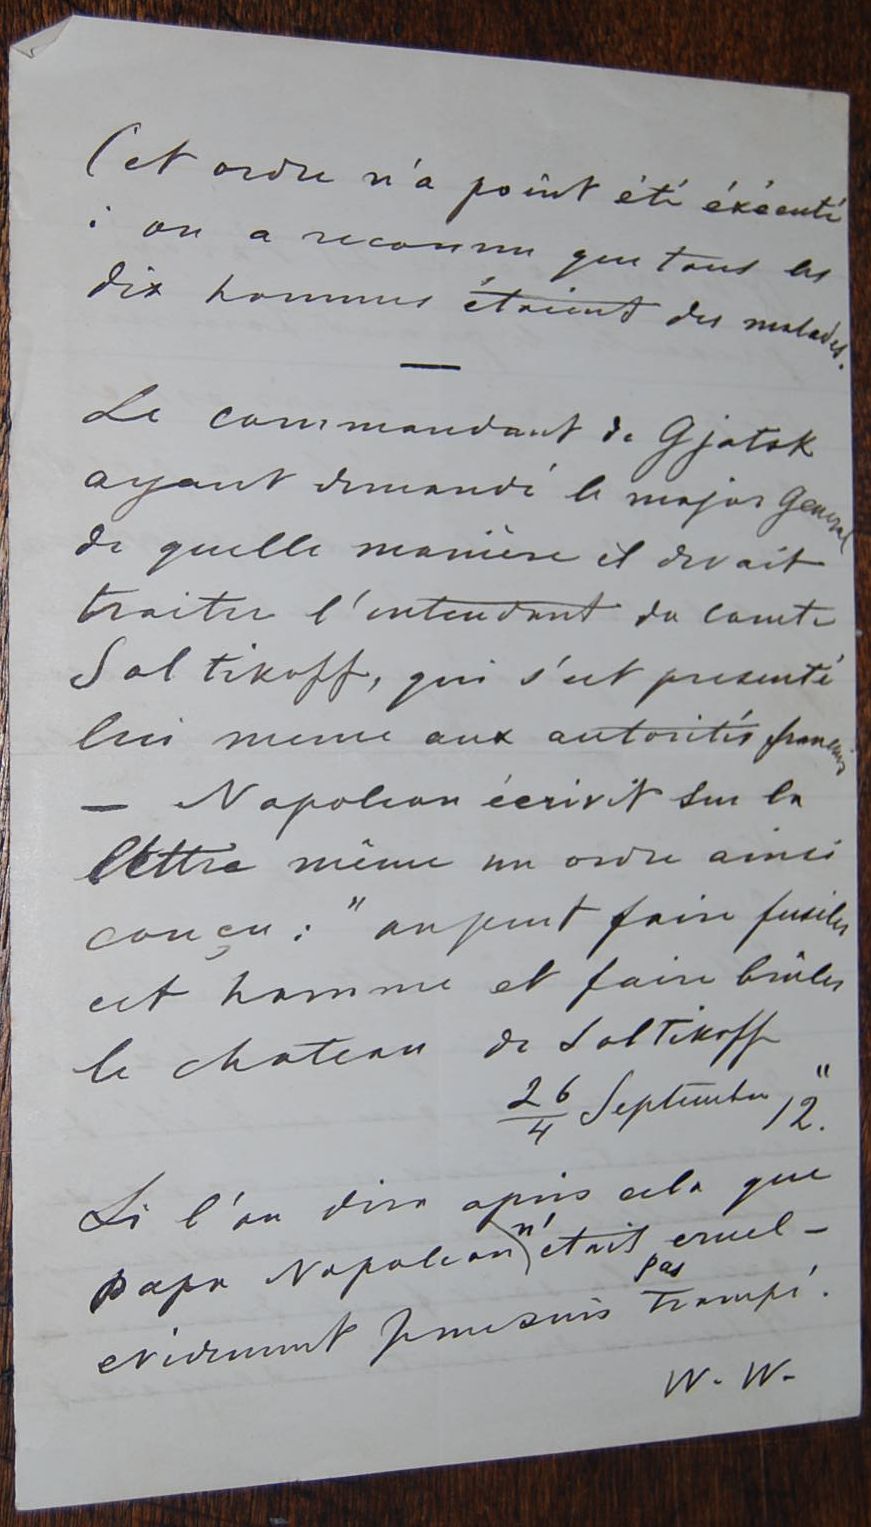 Cet ordre n'a point été éxécuté
: on a reconnu que tous les
dix hommes étaient des malades.
—
Le commandant de Gjatsk
ayant demandé le major General
de quelle manière il devait
traiter l'intendant du comte
Soltikoff, qui s'est presenté
lui meme aux autorités français
— Napoleon écrivit sur la
lettre même un ordre ainsi
conçu : "on peut faire fusiler
cet homme et faire brûler
le chateau de Soltikoff
26/4 Septembre 12."
Si l'on dira après cela que
papa Napoleon n'était cruel –
evidemment je me suis pas trompé.
W. W.